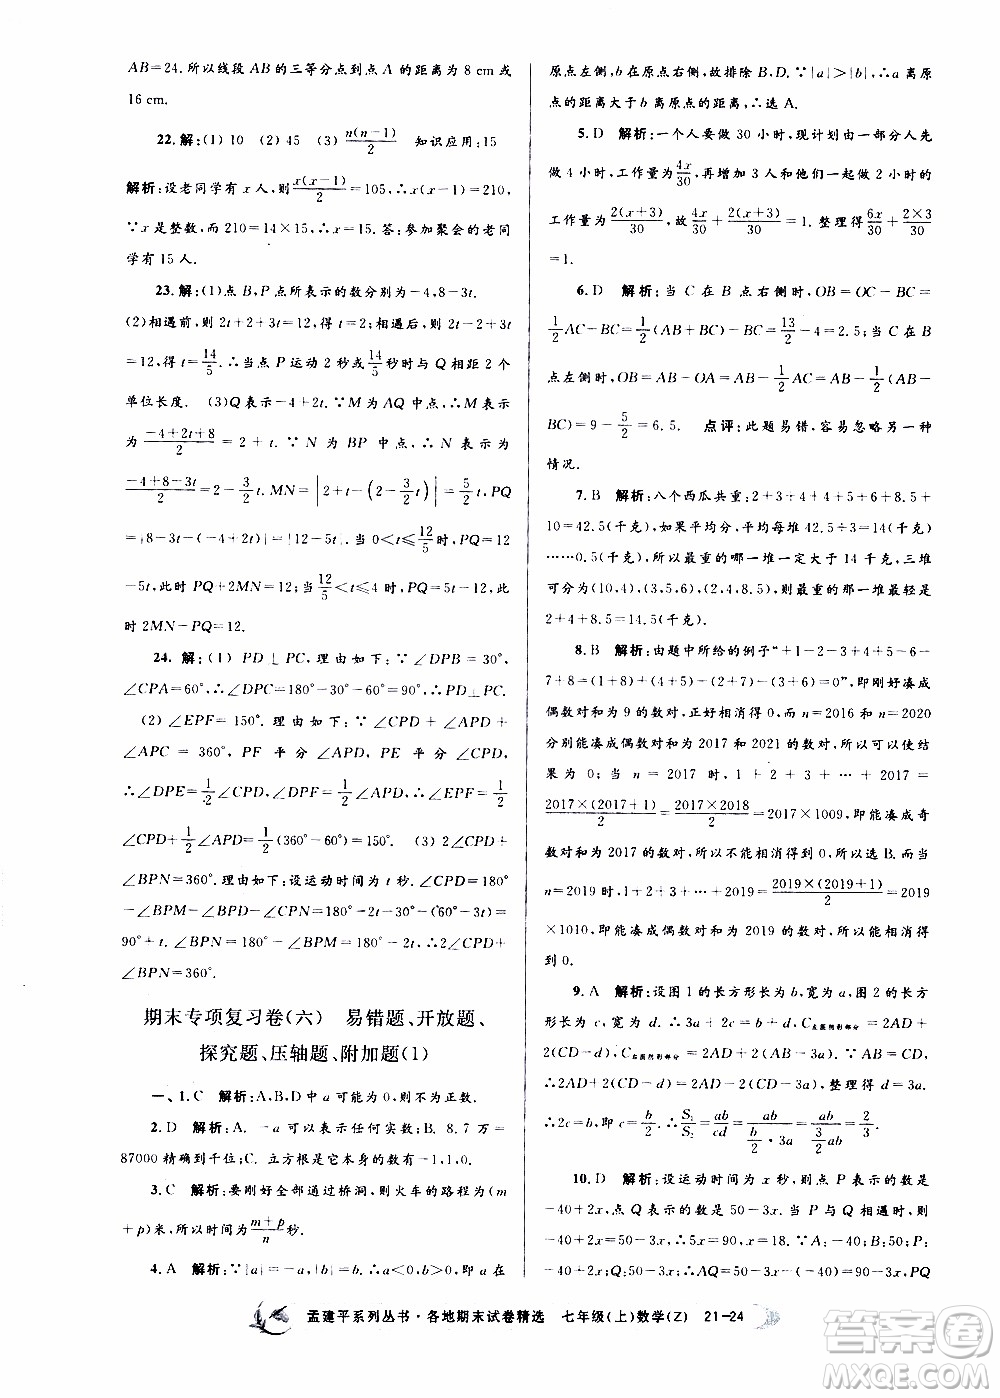 AB=24. 所以线段 AB 的三等分点到点 A 的距离为 8 cm 或
16 cm.
22. 解:(1) 10 (2) 45 (3) n(n-1)/2 知识应用:15
解析:设老同学有 x 人,则 x(x-1)/2=105,∴x(x-1)=210,
∵x 是整数,而 210=14×15,∴x=15. 答:参加聚会的老同
学有 15 人.
23. 解:(1)点 B,P 点所表示的数分别为-4,8-3t.
(2)相遇前,则 2t+2+3t=12,得 t=2;相遇后,则 2t-2+3t
=12,得 t=14/5.∴当点 P 运动 2 秒或14/5秒时与 Q 相距 2 个
单位长度. (3)Q 表示-4+2t.∵M 为 AQ 中点,∴M 表示
为 (-4+2t+8)/2=2+t.∵N 为 BP 中点,∴N 表示为
(-4+8-3t)/2=2-3/2t.MN=|2+t-(2-3/2t)|=5/2t,PQ
=|8-3t-(-4+2t)|=|12-5t|.当 0<t≤12/5时,PQ=12
-5t,此时 PQ+2MN=12;当12/5<t≤4 时,PQ=5t-12,此
时 2MN-PQ=12.
24. 解:(1) PD⊥PC,理由如下:∵∠DPB=30°,
∠CPA=60°,∴∠DPC=180°-30°-60°=90°,∴PD⊥PC.
(2) ∠EPF=150°. 理由如下:∵∠CPD+∠APD+
∠APC=360°,PF 平分∠APD,PE 平分∠CPD,
∴∠DPE=1/2∠CPD,∠DPF=1/2∠APD,∴∠EPF=1/2
∠CPD+1/2∠APD=1/2(360°-60°)=150°. (3) 2∠CPD+
∠BPN=180°.理由如下:设运动时间为 t 秒,∠CPD=180°
-∠BPM-∠BPD-∠CPN=180°-2t-30°-(60°-3t)=
90°+t,∠BPN=180°-∠BPM=180°-2t,∴2∠CPD+
∠BPN=360°.
期末专项复习卷(六) 易错题、开放题、
探究题、压轴题、附加题(1)
一、1. C 解析:A,B,D 中 a 可能为正数.
2. D 解析:A. -a 可以表示任何实数;B. 8.7 万=
87000 精确到千位;C. 立方根是它本身的数是-1,1,0.
3. C 解析:要刚好全部通过桥洞,则火车的路程为(m
+p)米,所以时间为 (m+p)/n 秒.
4. A 解析:∵|a|=-a,|b|=b,∴a<0,b>0,即 a 在
原点左侧,b 在原点右侧,故排除 B,D.∵|a|>|b|,∴a 离原
点的距离大于 b 离原点的距离,∴选 A.
5. D 解析:一个人要做 30 小时,现计划由一部分人先
做 4 小时,工作量为4x/30,再增加 3 人和他们一起做 2 小时的
工作量为 2(x+3)/30,故4x/30+2(x+3)/30=1,整理得6x/30+(2×3)/30
=1.
6. D 解析:当 C 在 B 点右侧时,OB=OC-BC=
1/2AC-BC=1/2(AB+BC)-BC=13/2-4=2.5;当 C 在 B
点左侧时,OB=AB-OA=AB-1/2AC=AB-1/2(AB-
BC)=9-5/2=6.5. 点评:此题易错,容易忽略另一种
情况.
7. B 解析:八个西瓜共重:2+3+4+4+5+6+8.5+
10=42.5(千克),如果平均分,平均每堆 42.5÷3=14(千克)
……0.5(千克),所以最重的哪一堆一定大于 14 千克,三堆
可分为(10,4),(3,5,6),(2,4,8.5),则最重的一堆最轻为
2+4+8.5=14.5(千克).
8. B 解析:由题中所给的例子“+1-2-3+4+5-6-
7+8=0,+1-2+3-4-5-6-7+8+9=0”,即刚好凑成
偶数对和为 9 的数对,正好相得 0,而 n=2016 和 n=2020
分别能凑成偶数对和 2017 和 2021 的数对,所以可以使结
果为 0;当 n=2017 时,1+2+3+…+n=
2017×(2017+1)/2=2017×2018/2=2017×1009,即能凑成奇
数对和为 2017 的数对,所以不能相得到 0,所以选 B.同理当
n=2019 时,1+2+3+…+n=2019×(2019+1)/2=2019
×1010,即能凑成偶数对和为 2019 的数对,所以能相得
到 0.
9. A 解析:设图 1 的长方形长为 b,宽为 a,图 2 的长方
形长为 c,宽为 d. ∵AD=3c=2b,C左图阴影部分=2AD+
2(CD-a),C右图阴影部分=2AD+2(CD-2d),
∴C左图阴影部分=C右图阴影部分,∴2AD+2(CD-a)=2AD+
2(CD-2d),整理得 d=3a.∵AD=3c=2b,
∴2c=b,故 c=b/2,∴S₁/S₂=ab/cd=ab/(b/2·3a)=ab/(3/2ab)=2/3.
10. D 解析:设运动时间为 x 秒,则点 P 表示的数是
-40+2x,点 Q 表示的数是 50-3x.当 P 与 Q 相遇时,有
-40+2x=50-3x,∴x=18.∵A:-40+2x,B:50,P:
-40+2x,Q:50-3x,∴AQ=90-3x,BP=90-
孟建平系列丛书·各地期末试卷精选 七年级(上)数学(Z) 21-24
答案圈
MXQE.COM